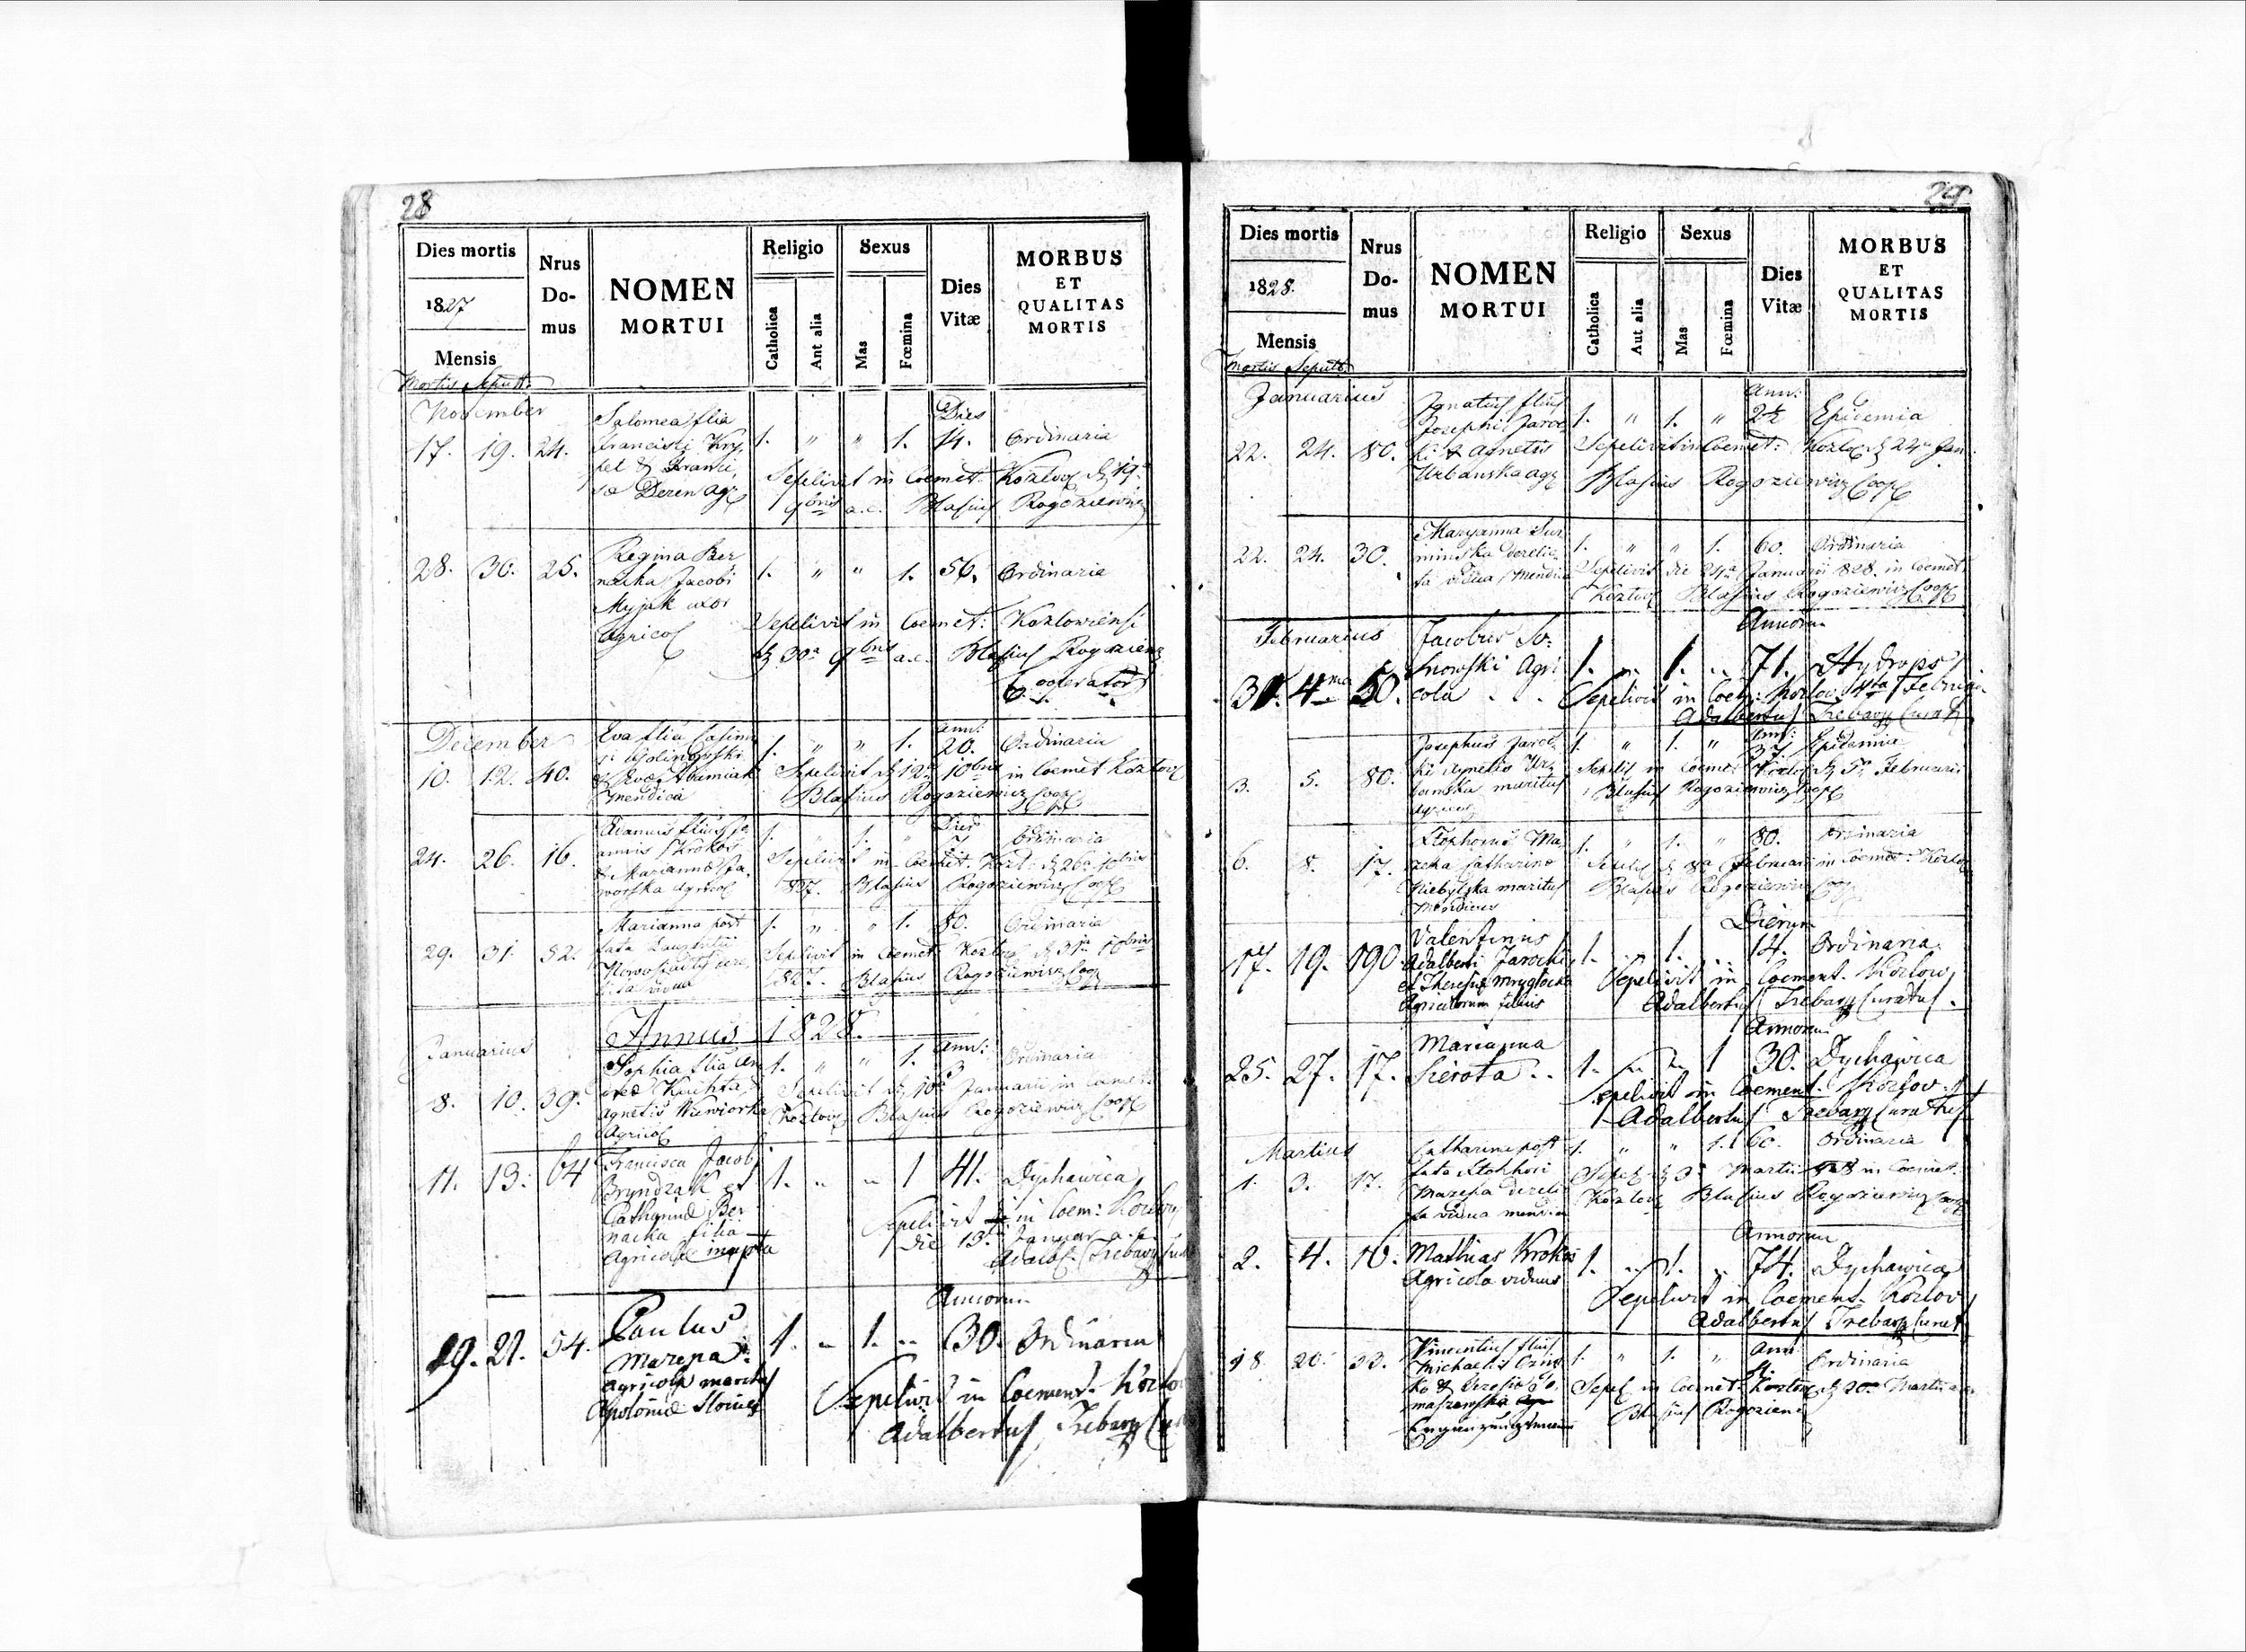 28
Dies mortis
1827
Mensis
Mortis Sepult.
Nrus
Do-
mus
NOMEN
MORTUI
Religio
Catholica
Aut alia
Sexus
Mas
Fœmina
Dies
Vitæ
MORBUS
ET
QUALITAS
MORTIS
November
17. 19. 24.
Salomea filia
Francisci Kry
pel & Franci
Deren
1. " " 1.
Dies
14. Ordinaria
Sepelivit in Coemet: Kozlov 19
9bris a.c. Blasius Rogoziewicz
28. 30. 25.
Regina Ber
nacka Jacobi
Myjak uxor
Agricol
1. " " 1. 56. Ordinaria
Sepelivit in Coemet: Kozlowiensi
30a 9bris a.c. Blasius Rogoziewicz
Cooperator
December
10. 12. 40.
Eva filia Casimi
ri
mendica
1. " " 1.
ann:
20. Ordinaria
Sepelivit 12a 10bris in Coemet Kozlov
Blasius Rogoziewicz Coop
24. 26. 16.
Adamus filius Jo
annis Krokos
& Marianna Ja
worska Agricol
1. " 1. "
Dies
7 Ordinaria
Sepelivit in Coemet. Kozl: 26a 10bris
827. Blasius Rogoziewicz Coop
29. 31. 52.
Marianna post
fata Laurentii
vidua
1. " " 1. 80. Ordinaria
Sepelivit in Coemet Kozlov 31a 10bris
827. Blasius Rogoziewicz Coop
Annus 1828.
Januarius
8. 10. 39.
Sophia filia An
dreæ Kuchta
Agnetis Wiewiorka
Agricol
1. " " 1.
ann:
3 Ordinaria
Sepelivit 10a Januarii in Coemet.
Kozlov Blasius Rogoziewicz Coop
11. 13. 64
Francisca Jacobi
Bryndzak et
Catharinæ Ber
nacka filia
Agricolæ nupta
1. " " 1 41. Dychawica
Sepelivit in Coem: Kozlov
die 13 Januar. a.c.
Adalb. Trebacz
19. 21. 54.
Paulus
Mazepa
Agricola maritus
Apolonia
1. " 1. "
Annorum
30. Ordinaria
Sepelivit in Coement. Kozlo
Adalbertus Trebacz
29
Dies mortis
1828.
Mensis
Mortis Sepult.
Nrus
Do-
mus
NOMEN
MORTUI
Religio
Catholica
Aut alia
Sexus
Mas
Fœmina
Dies
Vitæ
MORBUS
ET
QUALITAS
MORTIS
Januarius
22. 24. 80.
Ignatius filius
Josephi Jaroc
ki & Agnetis
Urbanska
1. " 1. "
Ann:
2½ Epidemia
Sepelivit in Coemet: Kozlov 24a Jan.
Blasius Rogoziewicz Coop
22. 24. 30.
Maryanna Sur
minska derelic
ta vidua Mendica
1. " " 1. 60. Ordinaria
Sepelivit die 24a Januarii 828. in Coemet:
Kozlov Blasius Rogoziewicz Coop
Februarius
4ma 50.
Jacobus So
snowski Agri
cola
1. " 1. "
Annorum
71. Hydrops
Sepelivit in Coem: Kozlov. 4ta Februar
Adalbertus Trebacz Curat
3. 5. 80.
Josephus Jaroc
ki Agnetis Ur
banska maritus
Agricol
1. " 1. "
Ann:
37. Epidemia
Sepelit in Coemet: Kozlov 5a Februarii
Blasius Rogoziewicz Coop
6. 8. 17.
Stephanus Ma
zepa Catharina
Niebylska maritus
Mendicus
1. " 1. " 80. Ordinaria
8a Februarii in Coemet: Kozlov
Blasius Rogoziewicz Coop
17. 19. 190.
Valentinus
Adalberti Jarocki
et Theresiæ Mryglocka
Agricolarum filius
1. " 1. "
Dierum
14. Ordinaria
Sepelivit in Coement. Kozlow
Adalbertus Trebacz Curatus.
25. 27. 17.
Marianna
Sierota
1. " " 1
Annorum
30. Dychawica
Sepelivit in Coement. Kozlov.
Adalbertus Trebacz Curatus
Martius
1. 3. 17.
Catharina post
fata Stephani
Mazepa dereli
ta vidua mendica
1. " " 1. 60. Ordinaria
Sepel 3a Martii 828 in Coemet.
Kozlov Blasius Rogoziewicz Coop
2. 4. 16.
Mathias Krokos
Agricola viduus
1. " 1. "
Annorum
74. Dychawica
Sepelivit in Coement. Kozlov
Adalbertus Trebacz Curat
18 20. 33.
Vincentius filius
Michaelis
1. " 1. "
Ann
Ordinaria
Sepel in Coemet: Kozlov 20a Martii
Blasius Rogoziewicz